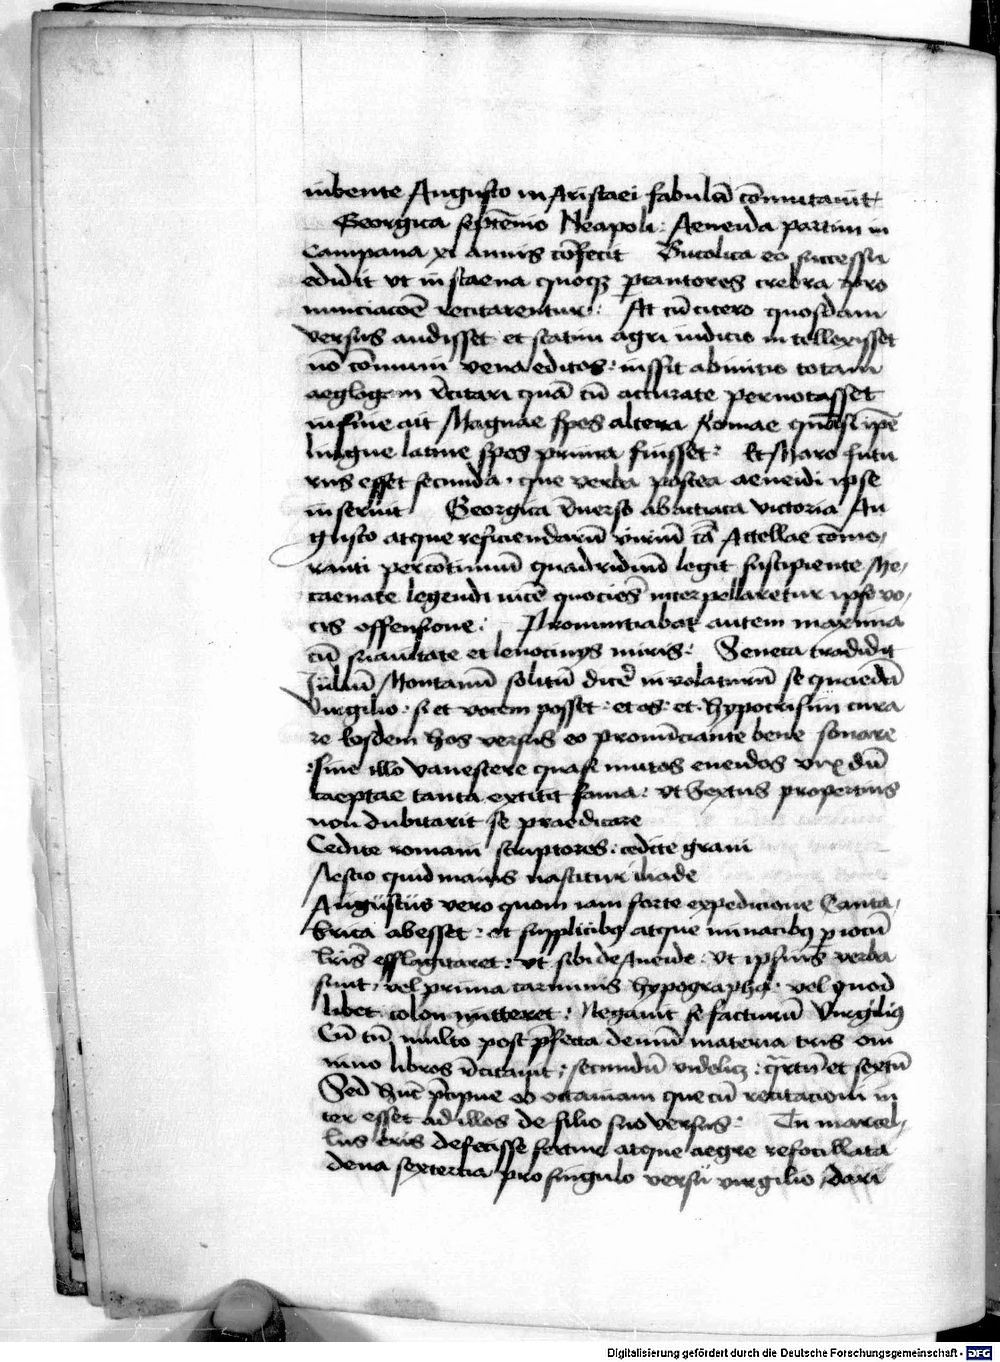 iubente Augusto in Aristaei fabulā cōmutauit
Georgica septēnio Neapoli: Aeneida partim in
Campana xi annis cōfecit Bucolica eo successu
edidit vt in scaena quoqꝫ ꝑ cantores crebra pro
nunciacōē recitarentur: At cū cicero quosdam
versus audisset et statim agri iudicio intellexisset
nō cōmuni vena editos: iussit ab initio totam
aeglogam rēcitari quā cū accurate pernotasset
in fine ait Magnae spes altera Romae quasi ipē
lingue latine spes prima fuisset: Et Maro futu
rus esset secunda. que verba postea aeneidi ipse
inseruit Georgica vͦ reuerso ab actiaca victoria Au
gusto atque reficiendarū viriū cā Attellae cōmo,
ranti per cōtinuū quadriduū legit suscipiente Me,
caenate legendi uicē quociēs interpellaretur ipse vo,
cis offensione: Pronuntiabat autem maxima
cū suauitate et lenociniis miris: Seneca tradidit
Iuliū Montanū solitū dicē inuolaturū se quaedā
Virgilio: si et vocem posset: et os: et hypocrisim cura
re eosdem hos versus eo pronūciante bene sonare
: sine illo vanescere quasi mutos eneidos vix dū
caeptae tanta extitit fama: vt Sextus propertius
non dubitarit se praedicare
Cedite romani scriptores: cedite grani
Nescio quid maius nascitur iliade
Augustus vero quom iam forte expedicione Canta,
brica abesset: et supplicibꝫ atque minacibꝫ ꝑ iocū
lr̄is efflagitaret: vt sibi de Aeneide: vt ipsius verba
sunt, vel prima carminis hypographa: vel quod
libet colon mitteret: Negauit se facturū Virgiliꝰ
Cū tū multo post ꝑfecta demū materia tris om
nino libros rēcitauit: secundū videlicꝫ: qrtū et sextū
Sed hūc p̄cipue ob octauiam que cū recitacioni in
ter esset ad illos de filio suo versus: Tu marcel,
lus eris defecisse fertur atque aegre refocillata
dena sextertia pro singulo versu virgilio dari
Digitalisierung gefördert durch die Deutsche Forschungsgemeinschaft - DFG